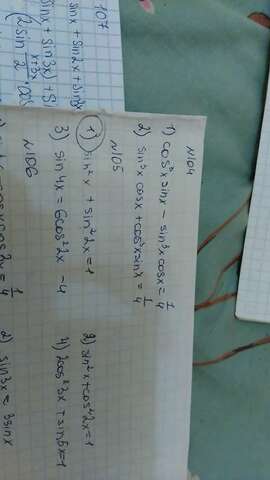 107
sinx + sin2x + sin3x
(sinx + sin3x) + si
(2sin x+3x/2 · cos
№104
1) cos³x sinx - sin³x cosx = 1/4
2) sin³x cosx + cos³x sinx = 1/4
№105
1) sin²x + sin²2x = 1
2) sin²x + cos²2x = 1
3) sin4x = 6cos²2x - 4
4) 2cos²3x + sin6x = 1
№106
cosx cos2x = 1/4
2) sin3x = 3sinx